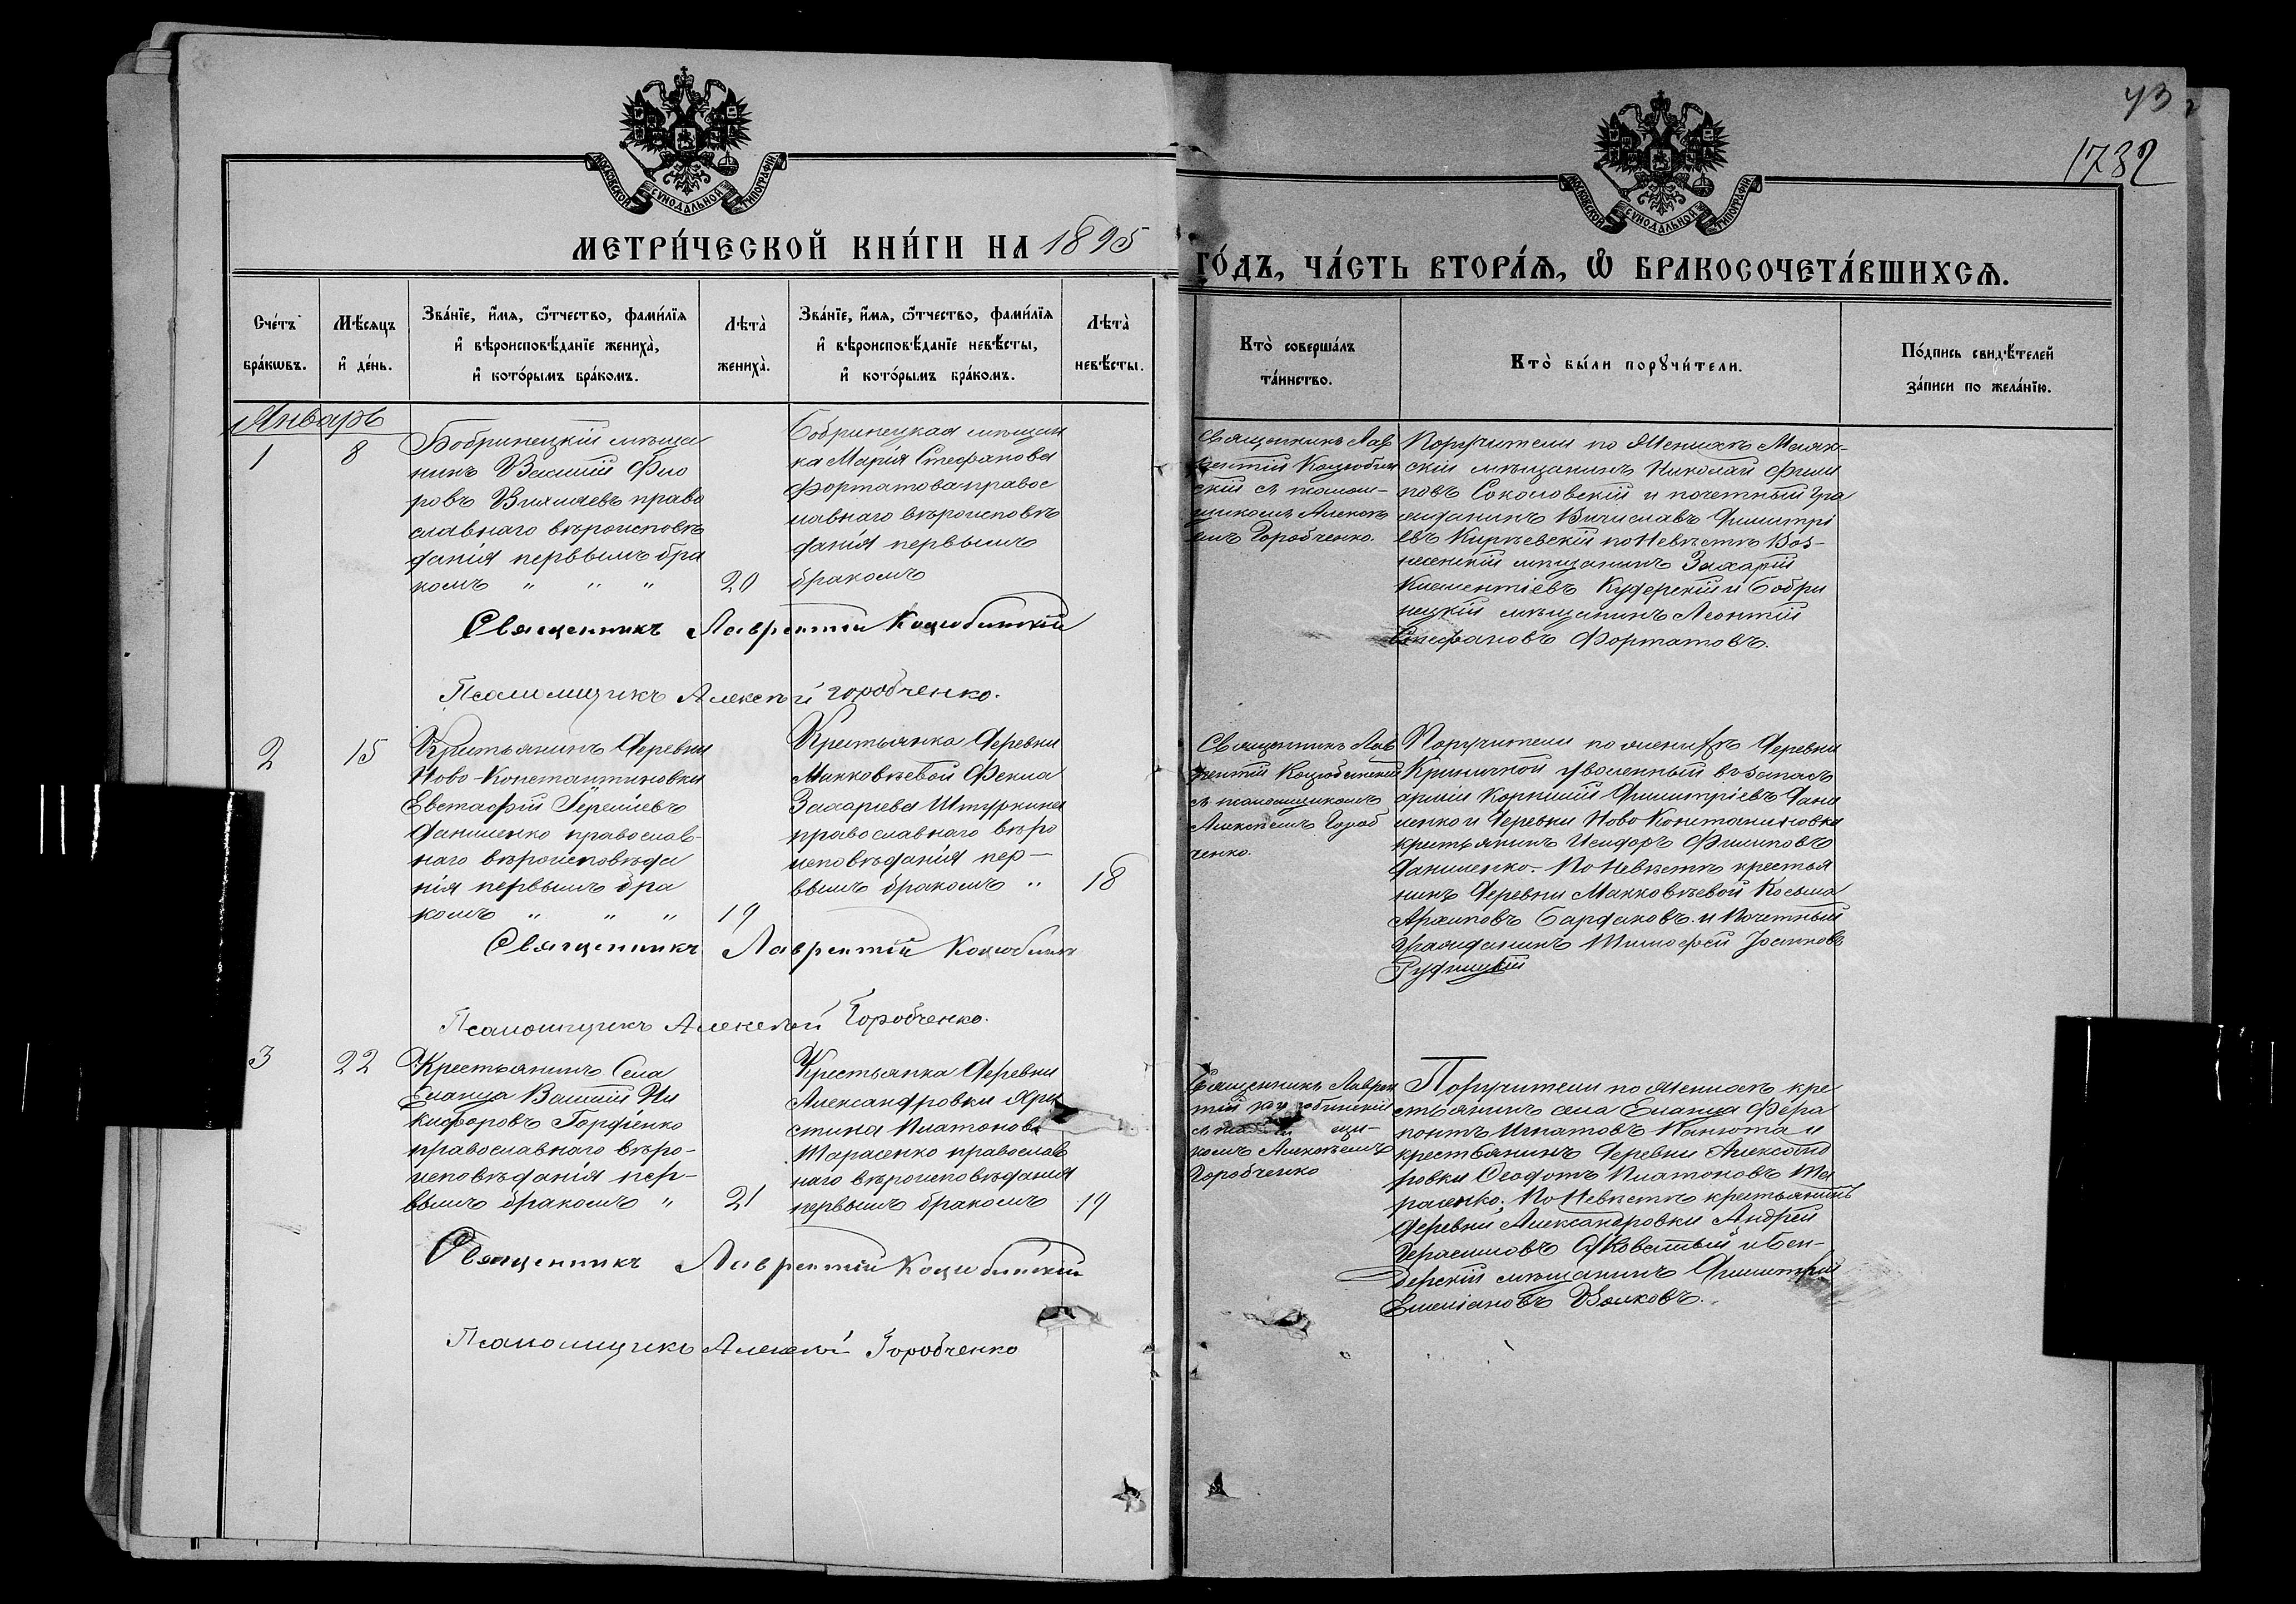 43
1732
МОСКОВСКОЙ СѴНОДАЛЬНОЙ ТИПОГРАФІИ
МОСКОВСКОЙ СѴНОДАЛЬНОЙ ТИПОГРАФІИ
МЕТРИ́ЧЕСКОЙ КНИ́ГИ НА 1895
ГО́ДЪ, ЧА́СТЬ ВТОРА́Ѧ, Ѡ БРАКОСОЧЕТА́ВШИХСѦ.
Сче́тъ
бра́кѡвъ.
Мѣ́сяцъ
и҆ де́нь.
Зва́нїе, и҆́мя, ѻ҆́тчество, фами́лїя
и҆ вѣроисповѣ́данїе жениха̀,
и҆ кото́рымъ бра́комъ.
Лѣта̀
жениха̀.
Зва́нїе, и҆́мя, ѻ҆́тчество, фами́лїя
и҆ вѣроисповѣ́данїе невѣ́сты,
и҆ кото́рымъ бра́комъ.
Лѣта̀
невѣ́сты.
Кто̀ соверша́лъ
та́инство.
Кто̀ бы́ли порꙋчи́тели.
По́дпись свидѣ́телей
за́писи по жела́нїю.
Январь
1
8
Бобринецкій мѣща
нинъ Василій Фло
ровъ право
славнаго вѣроисповѣ
данія первымъ бра
комъ " " "
20
Бобринецкая мѣщан
ка Марія Стефанова
Фортатова правос
лавнаго вѣроисповѣ
данія первымъ
бракомъ
Священникъ Лав
рентій Коцюбин
скій съ псаломщикомъ Алексѣ
емъ Горобченко.
Поручители по Женихѣ
скій мѣщанинъ Николай Филип
повъ Соколовскій и почетный гра
жданинъ Вячиславъ Димитрі
евъ Киріевскій по Невѣстѣ Воз-
несенскій мѣщанинъ Захарій
Климентіевъ Куферскій и Бобри
нецкій мѣщанинъ Леонтій
Стефановъ Фортатовъ.
Священникъ Лаврентій Коцюбинскій
Псаломщикъ Алексѣй Горобченко.
2
15
Крестьянинъ Деревни
Ново-Константиновки
Евстафій Іереміевъ
Даниленко православ-
наго вѣроисповѣда
нія первымъ бра
комъ " " "
19
Крестьянка Деревни
Макковѣевой Фекла
Захаріева Штуркина
православнаго вѣро
исповѣданія пер-
вымъ бракомъ "
18
Священникъ Лав
рентій Коцюбинскій
съ псаломщикомъ
Алексѣемъ Гороб
ченко.
Поручители по женихѣ Деревни
Криничной уволенный въ запасъ
арміи Корнилій Димитріевъ Дани
ленко и Деревни Ново Константиновки
крестьянинъ Исидоръ Филиповъ
Даниленко. По Невѣстѣ крестья
нинъ Деревни Макковѣевой Косьма
Архиповъ Бардаковъ и Почетный
Гражданинъ Тимофей Іоанновъ
Рудницкій
Священникъ Лаврентій Коцюбинск
Псаломщикъ Алексѣй Горобченко.
3
22
Крестьянинъ Села
Еланца Василій Ни
кифоровъ Гордіенко
православнаго вѣро-
исповѣданія пер-
вымъ бракомъ "
21
Крестьянка Деревни
Александровки Хри
стина Платонова
Тарасенко православ
наго вѣроисповѣданія
первымъ бракомъ
19
Священникъ Лаврен
тій Коцюбинскій
съ псаломщи-
комъ Алексѣемъ
Горобченко
Поручители по женихѣ кре
стьянинъ села Еланца Фера
понтъ Игнатовъ Канюта и
крестьянинъ Деревни Александ
ровки Феодотъ Платоновъ Та
расенко; По Невѣстѣ крестьянинъ
Деревни Александровки Андрей
Герасимовъ и Бен-
дерскій мѣщанинъ Димитрій
Емеліановъ Волковъ.
Священникъ Лаврентій Коцюбинскій
Псаломщикъ Алексѣй Горобченко